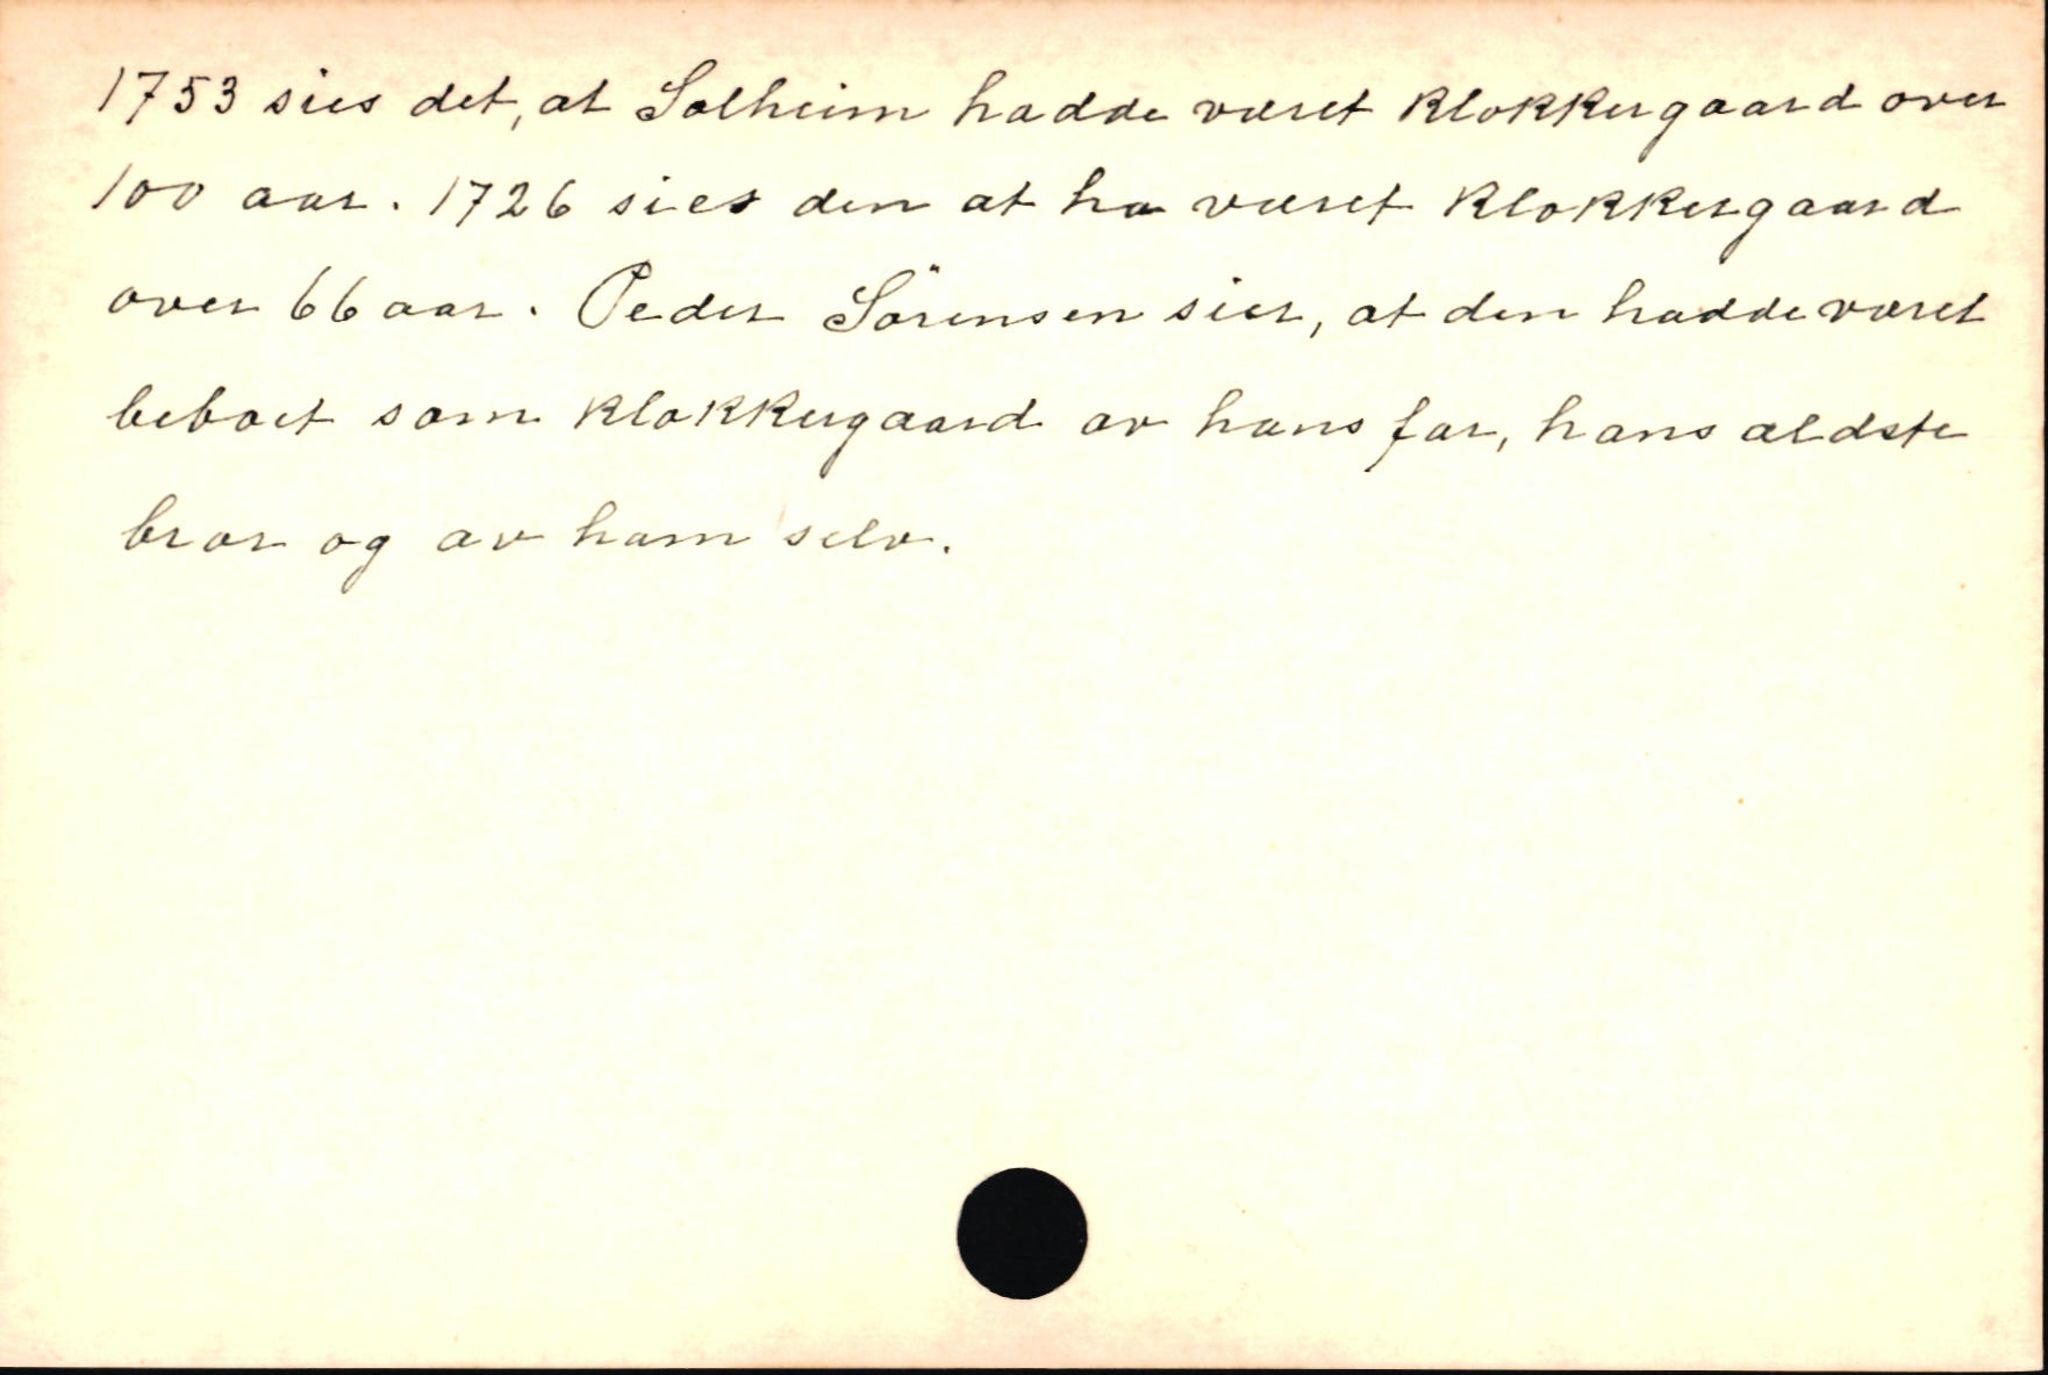 1753 sies det, at Solheim hadde været klokkergaard over
100 aar. 1726 sies den at ha været klokkergaard
over 66 aar. Peder Sörensen sier, at den hadde været
beboet som klokkergaard av hans far, hans ældste
bror og av ham selv.